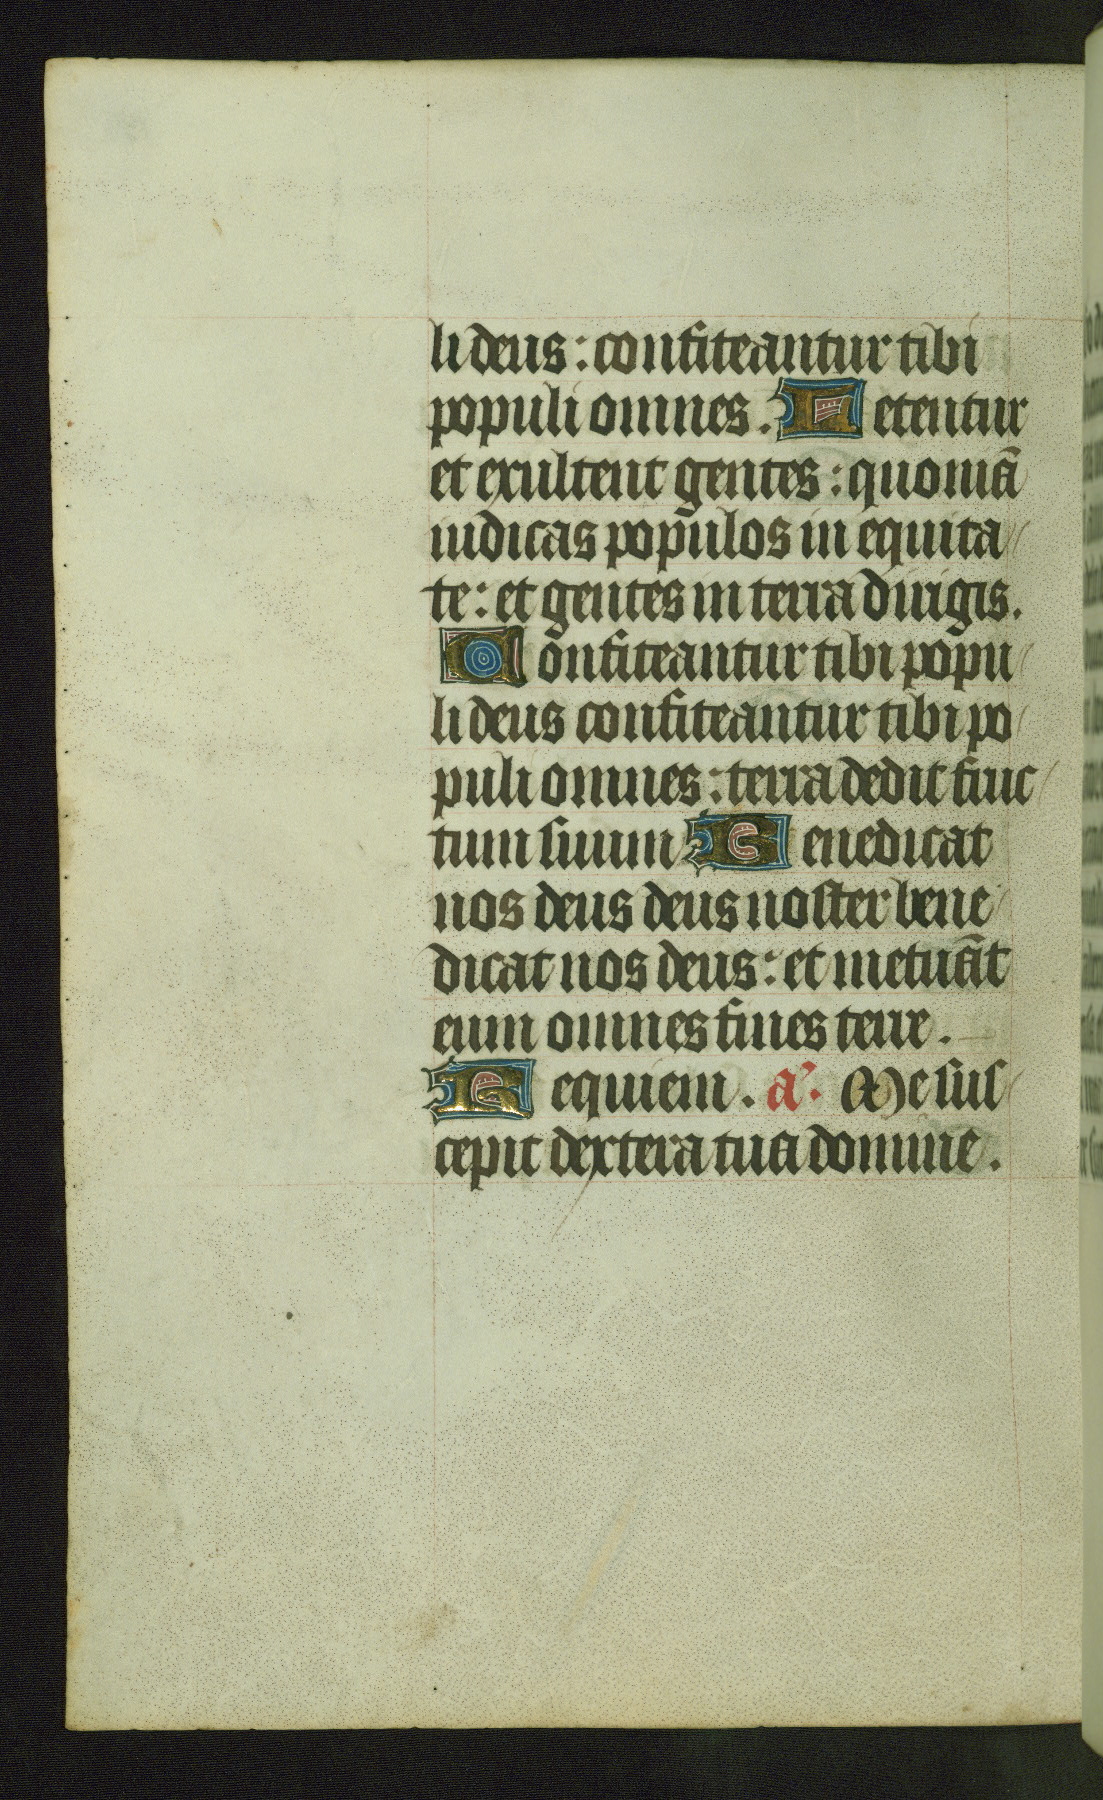 li deus : confiteantur tibi
populi omnes . Letentur
et exultent gentes : quoniā
iudicas populos in equita
te : et gentes in terra dirigis .
Confiteantur tibi popu
li deus confiteantur tibi po
puli omnes : terra dedit fruc
tum suum Benedicat
nos deus deus noster bene
dicat nos deus : et metuāt
eum omnes fines terre .
Requiem . a . Me sus
cepit dextera tua domine .